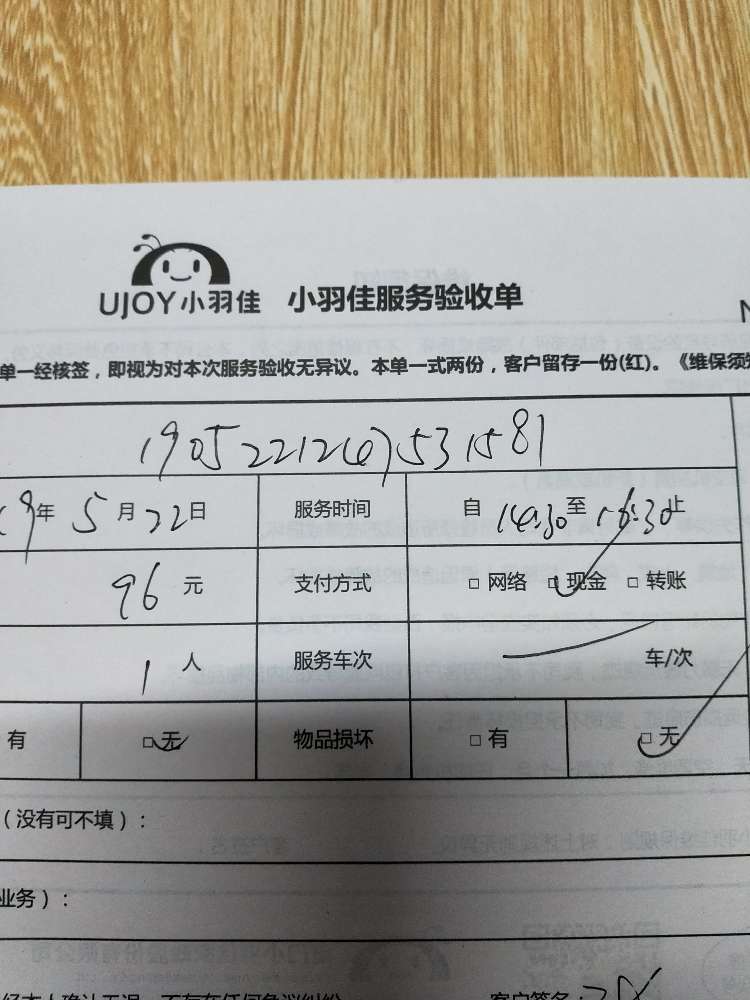 UJOY小羽佳 小羽佳服务验收单
单一经核签，即视为对本次服务验收无异议。本单一式两份，客户留存一份(红)。《维保须知
1905221267531581
19年 5月22日 服务时间 自 14:30至16:30止
96元 支付方式 □ 网络 □ 现金 □ 转账
1人 服务车次 车/次
有 □ 无 物品损坏 □ 有 □ 无
（没有可不填）：
业务）：
客户签名：